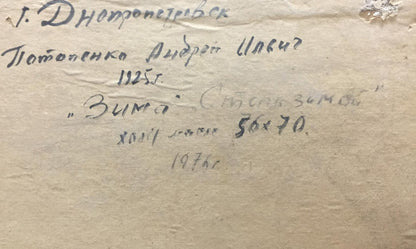 г. Днепропетровск
Потопенко Андрей Ильич
1925 г.
"Зима" Степь зимой"
холст масло 56х70.
1976г.